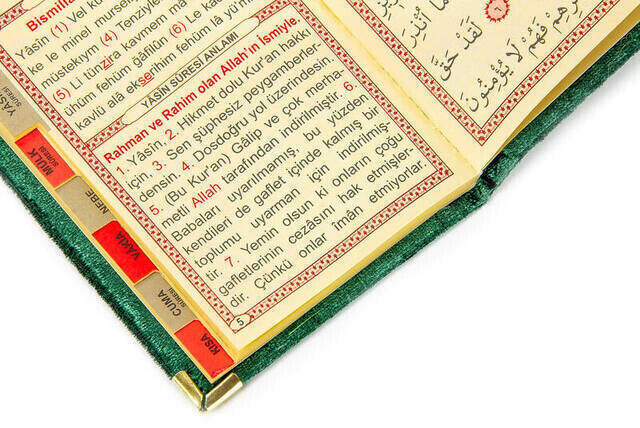 Bismilla
Yâsîn (1) Vel ku
ke le minel mursel
müstekıym (4) Tenziyle
(5) Li tünzira kavmem mâ
ühüm fehüm ğâfilûn (6) Le ka
kavlü alâ ekserihim fehüm lâ yü'm
YÂSÎN SÛRESİ ANLAMI
Rahman ve Rahim olan Allah'ın ismiyle.
1. Yâsîn, 2. Hikmet dolu Kur'an hakkı
için, 3. Sen şüphesiz peygamberler-
densin. 4. Dosdoğru yol üzerindesin.
5. (Bu Kur'an) Gâlip ve çok merha-
metli Allah tarafından indirilmiştir. 6.
Babaları uyarılmamış, bu yüzden
kendileri de gaflet içinde kalmış bir
toplumu uyarman için indirilmiş-
tir. 7. Yemin olsun ki onların çoğu
gafletlerinin cezâsını hak etmişler-
dir. Çünkü onlar îmân etmiyorlar.
5
YÂSÎN
SÛRESİ
MÜLK
SÛRESİ
NEBE
VÂKIA
CUMA
SÛRESİ
KISA
لَقَدْ حَقَّ
فَهُمْ لَا يُؤْمِنُونَ